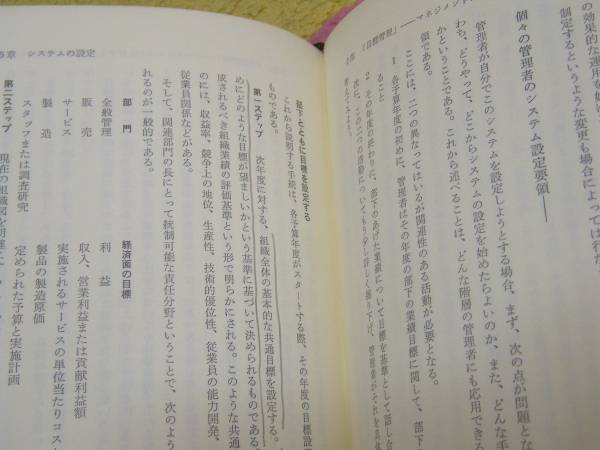 的な効果的な運用を始め
制定するというような変更も場合によっては行な
個々の管理者のシステム設定要領――
管理者が自分でこのシステムを設定しようとする場合、まず、次の点が問題とな
わち、どうやって、どこからシステムの設定を始めたらよいのか、また、どんな手
かということである。これから述べることは、どんな階層の管理者にも応用できる
領である。
ここには、二つの異なってはいるが関連性のある活動が必要となる。
1 各予算年度の初めに、管理者はその年度の部下の業績目標に関して、部下
ること
2 その年度の終わりに、部下のあげた業績について目標を基準として話し合
次に、この二つの活動についてもう少し詳しく掘り下げ、管理者がそれを具体
部下とともに目標を設定する
これから説明する手続は、各予算年度がスタートする際、その年度の目標設
ものである。
第一ステップ 次年度に対する、組織全体の基本的な共通目標を設定する。
めにどのような目標が望ましいかという基準に基づいて決められるものである。
成されるべき組織業績の評価基準という形で明らかにされる。このような共通
のには、収益率、競争上の地位、生産性、技術的優位性、従業員の能力開発、
従業員関係などがある。
そして、関連部門の長にとって統制可能な責任分野ということで、次のよう
れるのが一般的である。
部門 経済面の目標
全般管理 利益
販売 収入、営業利益または貢献利益額
サービス 実施されるサービスの単位当たりコス
製造 製品の製造原価
スタッフまたは調査研究 定められた予算と実施計画
第二ステップ 現在の組織図を明確に
5章 システムの設定
「目標管理」――マネジメント